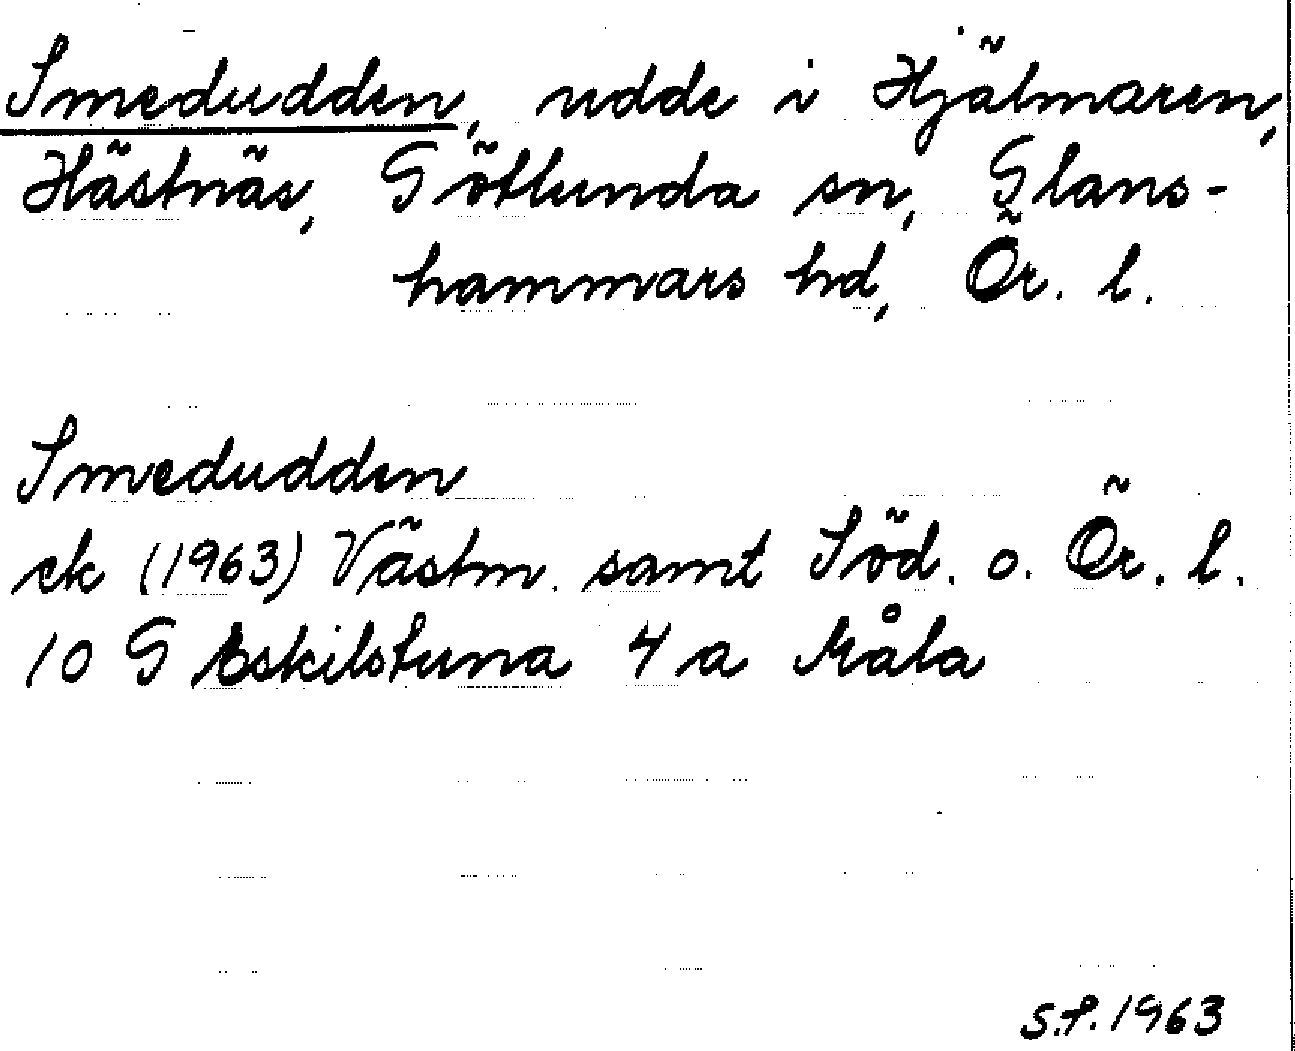 Smedudden, udde i Hjälmaren,
Hästnäs, Götlunda sn, Glans-
hammars hd, Ör. l.
Smedudden
ek (1963) Västm. samt Söd. o. Ör. l.
10 G Eskilstuna 4 a Måla
S.F. 1963